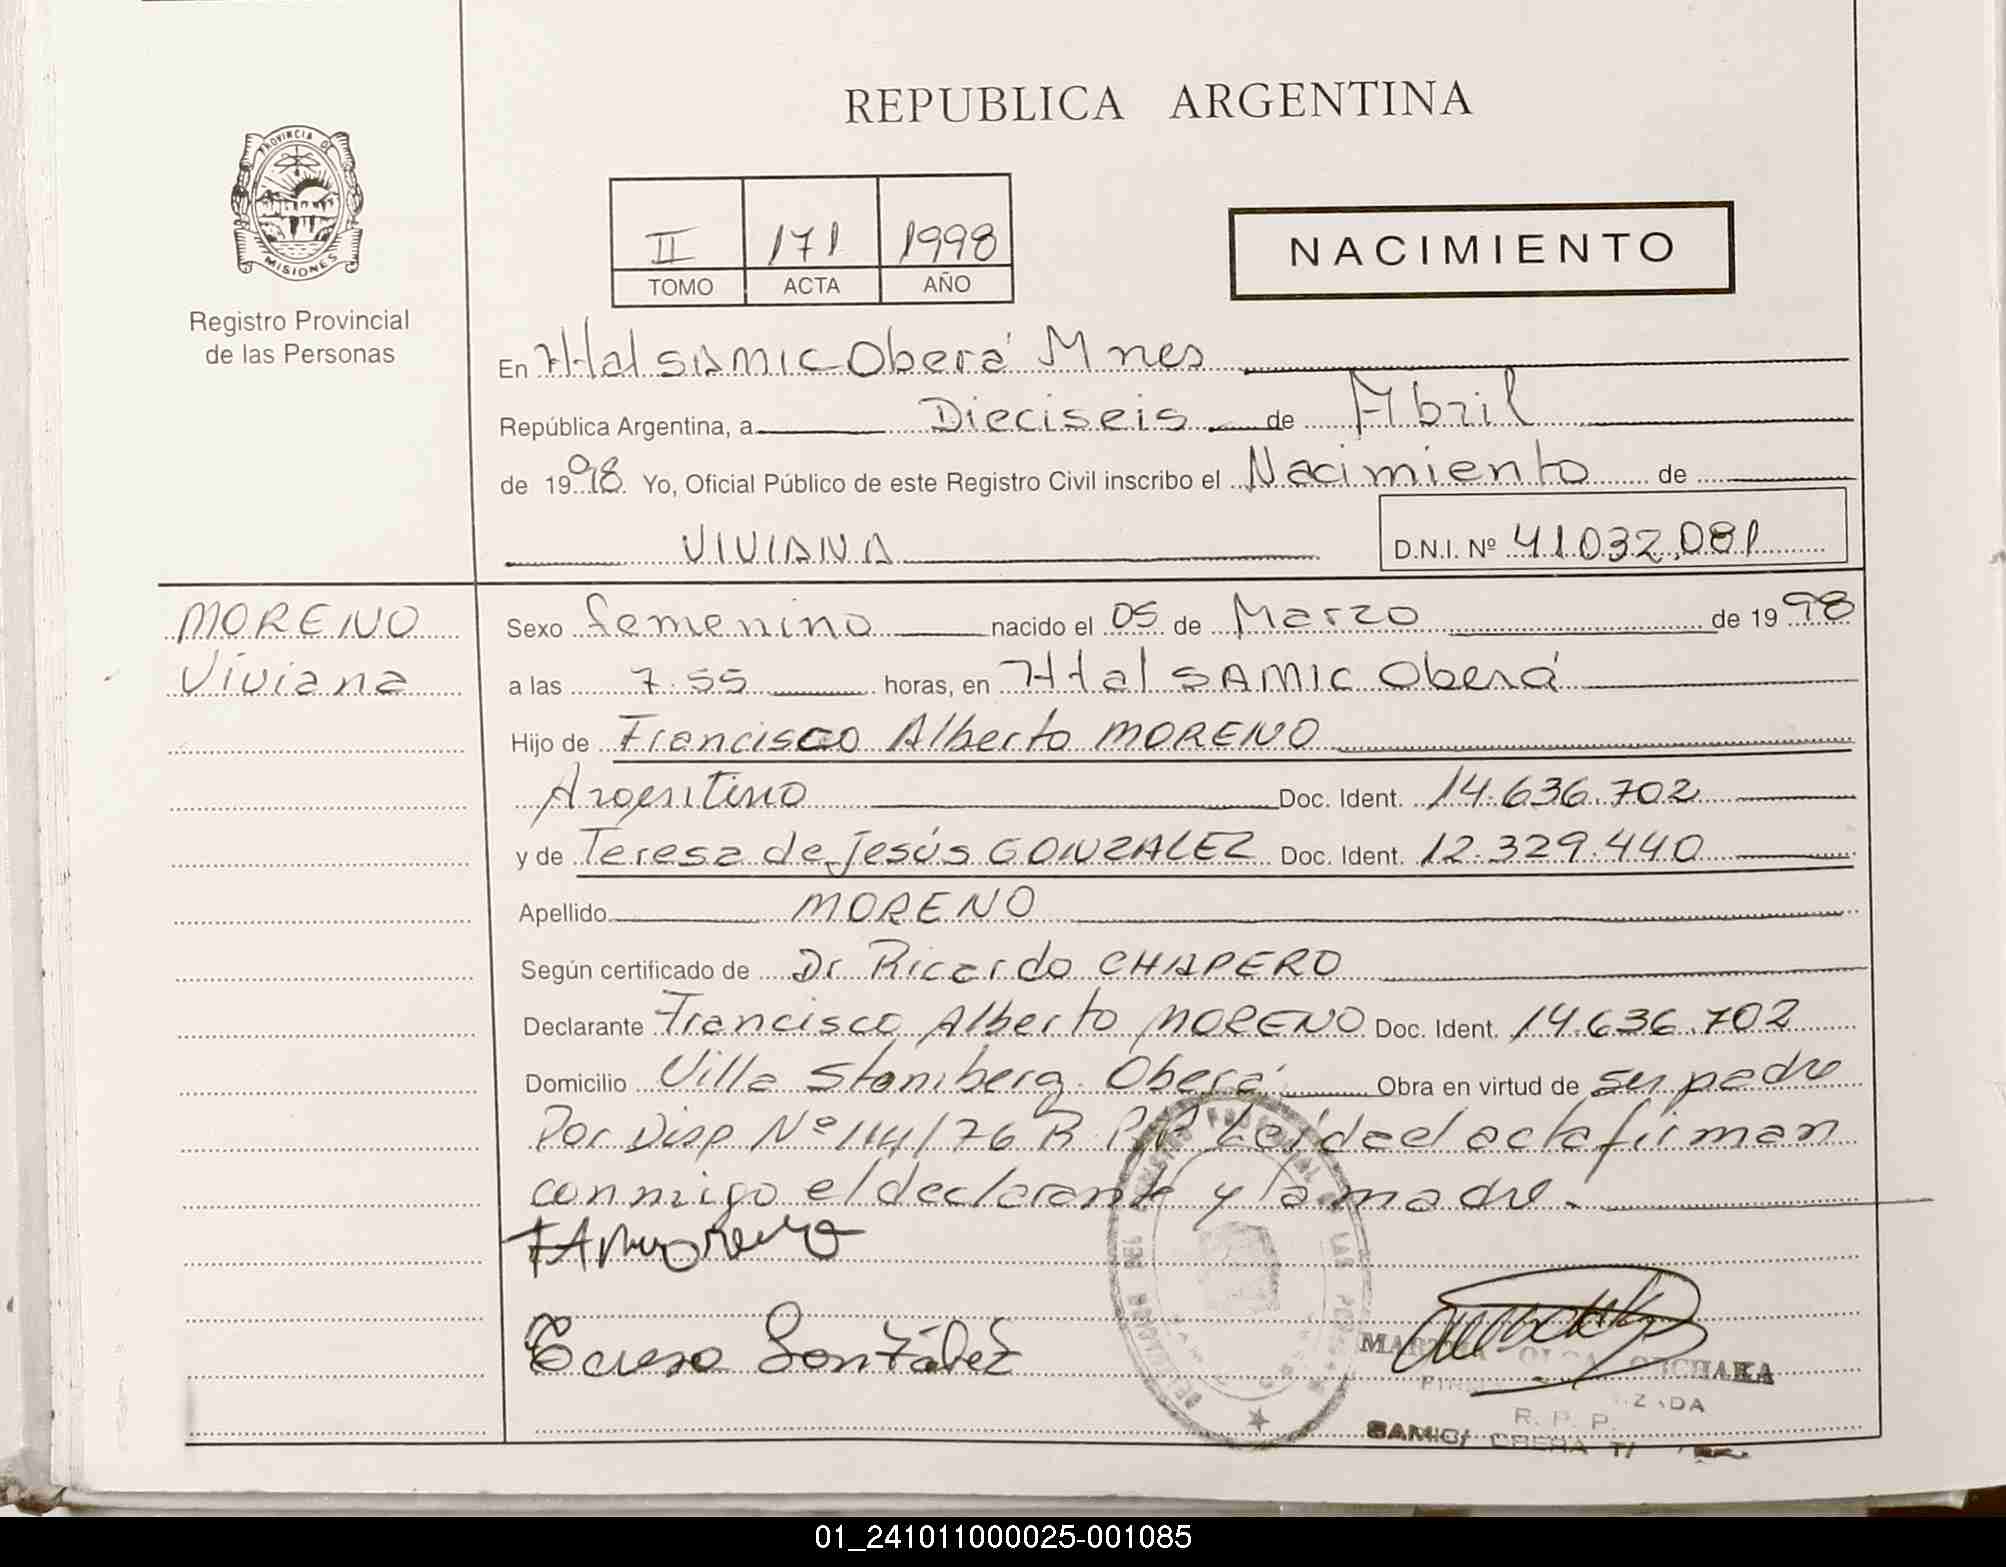 REPUBLICA ARGENTINA
PROVINCIA DE
MISIONES
Registro Provincial
de las Personas
II 171 1998
TOMO ACTA AÑO
NACIMIENTO
En Htal SAMIC Oberá Mnes
República Argentina, a Dieciseis de Abril
de 1998 Yo, Oficial Público de este Registro Civil inscribo el Nacimiento de
VIVIANA D.N.I. Nº 41.032.081
MORENO
Viviana
Sexo femenino nacido el 05 de Marzo de 1998
a las 7.55 horas, en Htal SAMIC Oberá
Hijo de Francisco Alberto MORENO
Argentino Doc. Ident. 14.636.702
y de Teresa de Jesús GONZALEZ Doc. Ident. 12.329.440
Apellido MORENO
Según certificado de Dr Ricardo CHAPERO
Declarante Francisco Alberto MORENO Doc. Ident. 14.636.702
Domicilio Villa Stamberg Oberá Obra en virtud de ser padre
Por Disp Nº 114/76 R.P.P. Leída el acta firman
conmigo el declarante y la madre.
FAMoreno
Teresa González
MARTHA OLGA
R. P. P.
SAMIC/
01_241011000025-001085